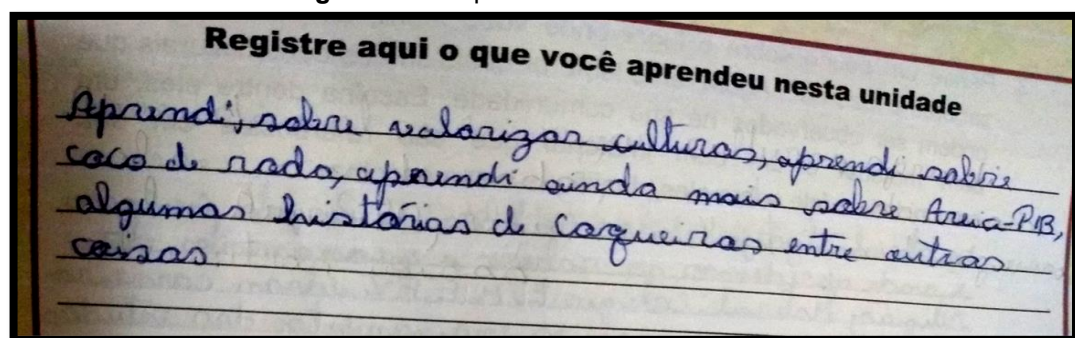 Registre aqui o que você aprendeu nesta unidade
Aprendi, sobre valorizar culturas, aprendi sobre
coco de roda, aprendi ainda mais sobre Areia-PB,
algumas histórias de coqueiras entre outras
coisas